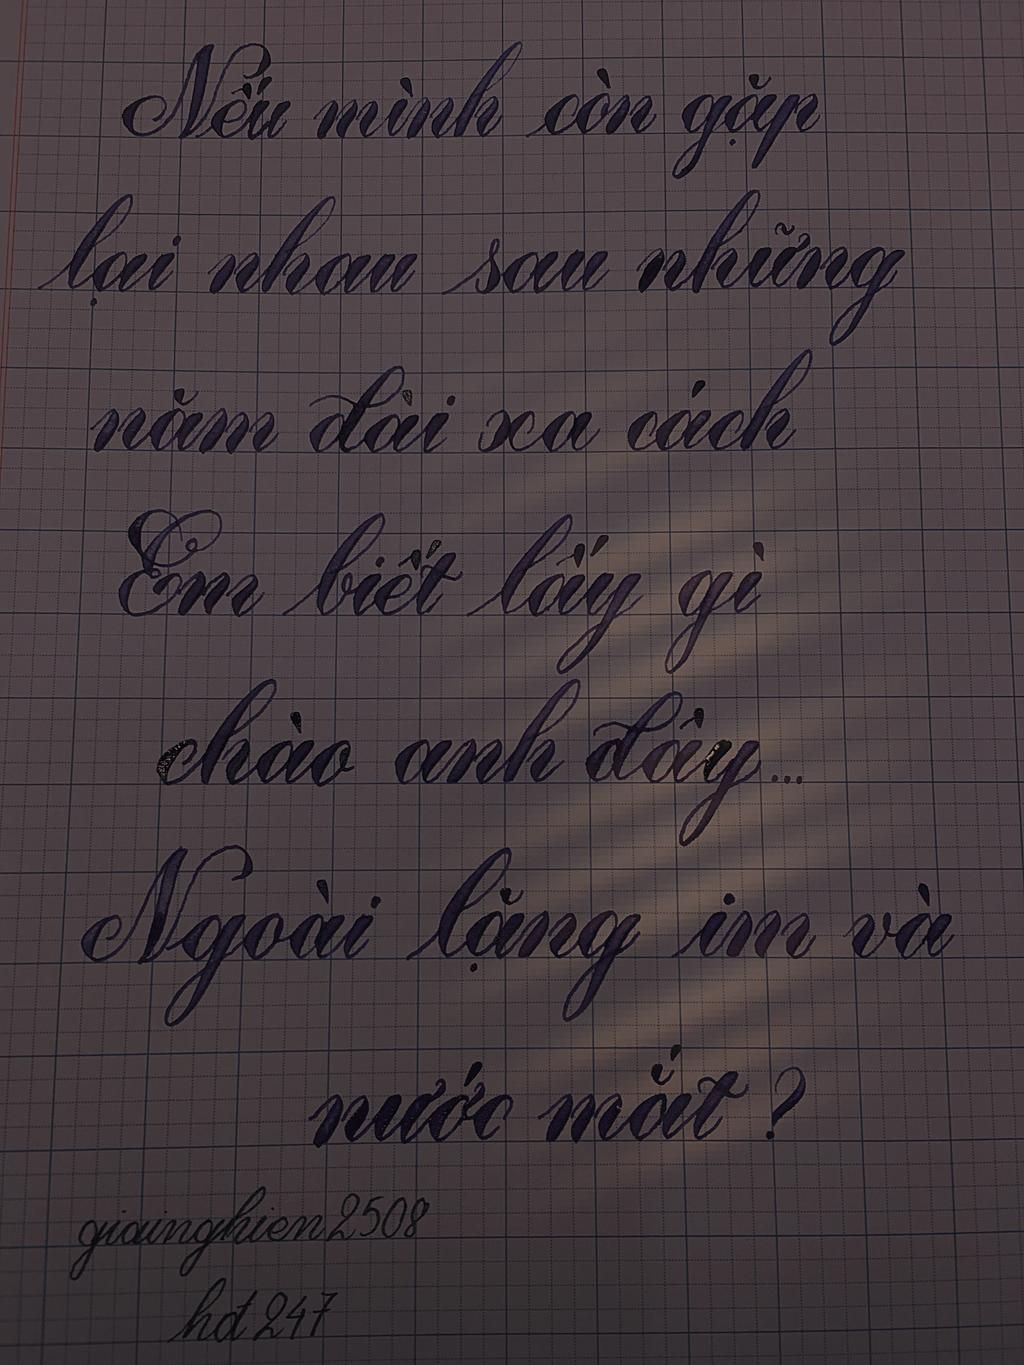 Nếu mình còn gặp
lại nhau sau những
năm dài xa cách
Em biết lấy gì
chào anh đây...
Ngoài lặng im và
nước mắt ?
giainghien2508
hđ 247